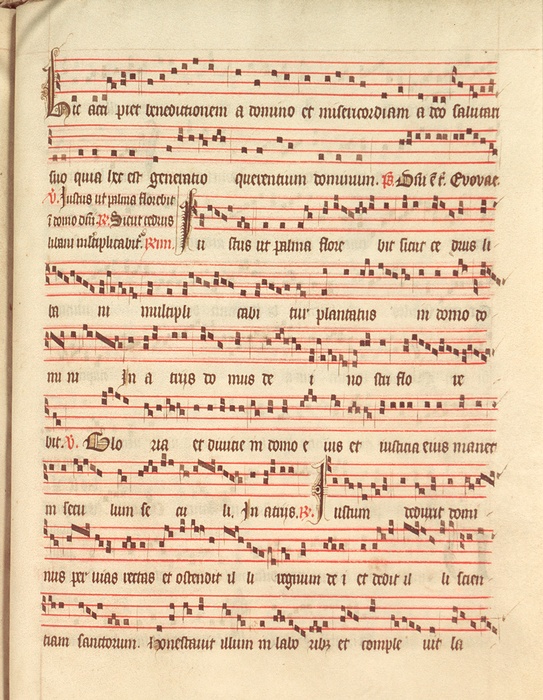 Hic acci piet benedictionem a domino et misericordiam a deo salutari
suo quia hec est generatio querentium dominum. ps. Dñi ē t̄. Evovae.
V. Iustus ut palma florebit
ī domo dñi. R. Sicut cedrus
libani mltiplicabit. Rm̄. Iu stus ut palma flore bit sicut ce drus li
ba ni multipli cabi tur plantatus in domo do
mi ni In a triis do mus de i no stri flo re
bit. V. Glo ria et divitie in domo e ius et iusticia eius manet
in secu lum se cu li. In atriis. R. Iustum deduxit domi
nus per vias rectas et ostendit il li regnum de i et dedit il li scien
tiam sanctorum. Honestavit illum in labo ribz et comple vit la